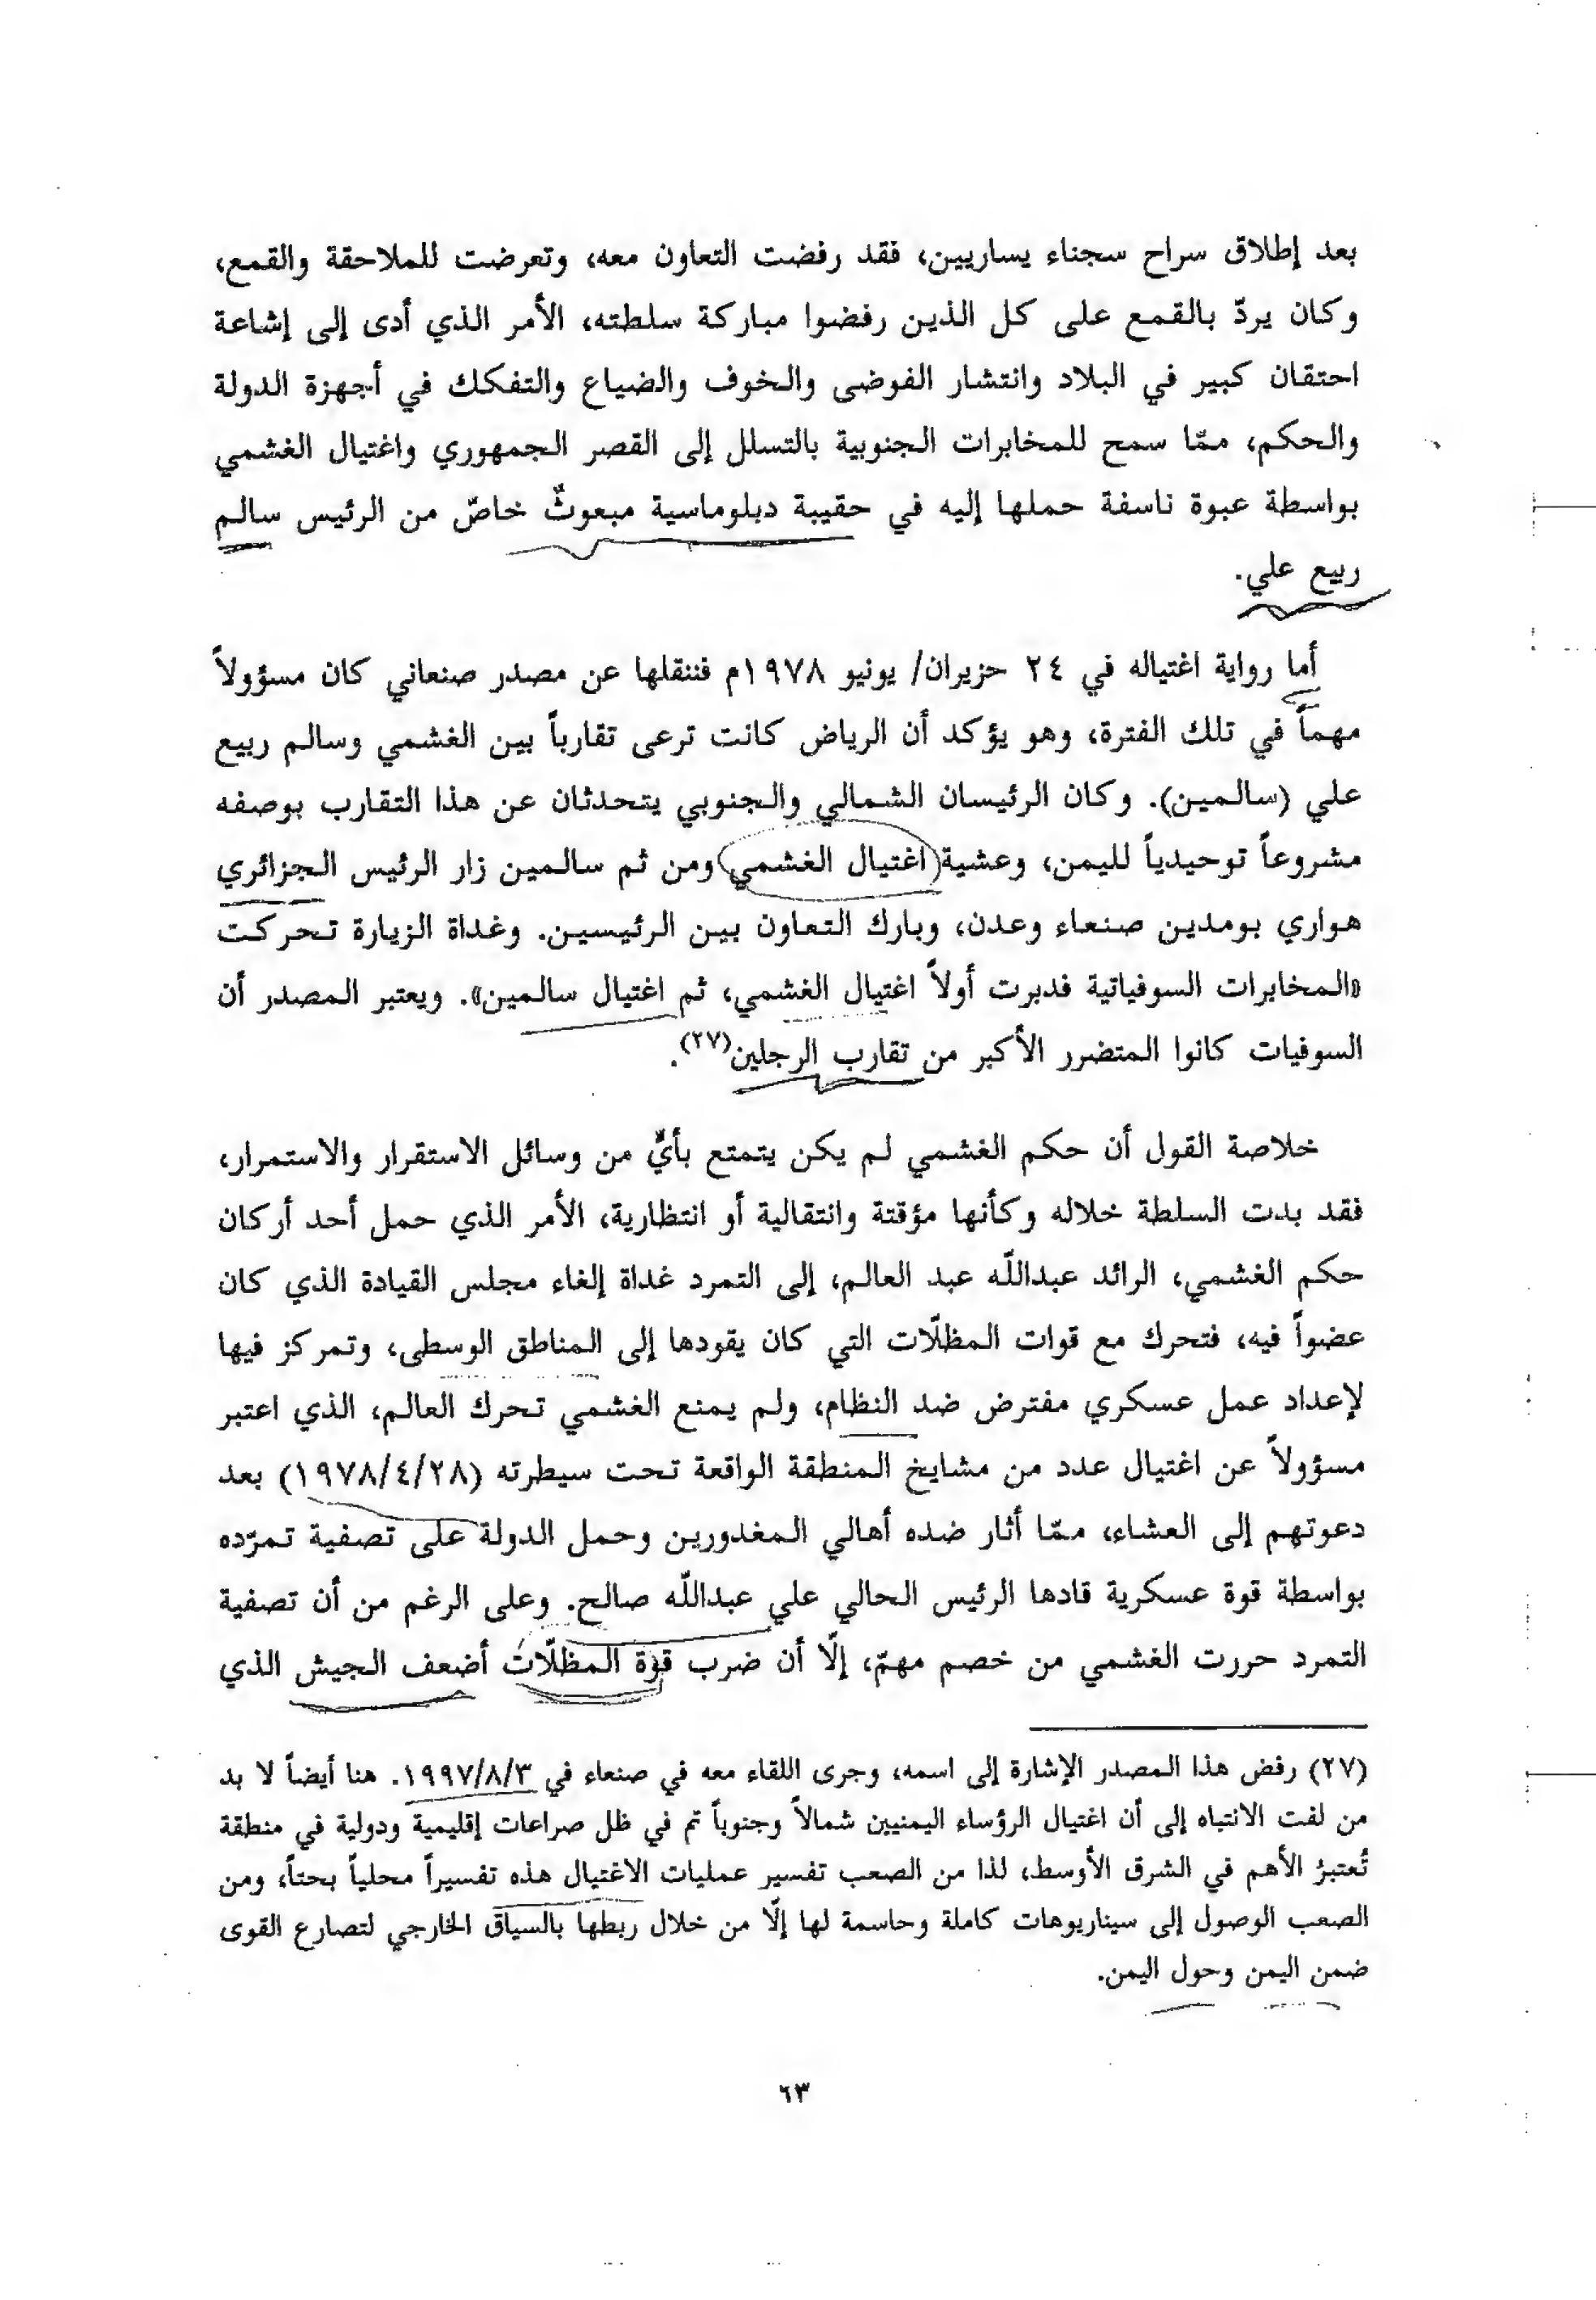 بعد إطلاق سراح سجناء يساريين، فقد رفضت التعاون معه، وتعرضت للملاحقة والقمع،
وكان يردّ بالقمع على كل الذين رفضوا مباركة سلطته، الأمر الذي أدى إلى إشاعة
احتقان كبير في البلاد وانتشار الفوضى والخوف والضياع والتفكك في أجهزة الدولة
والحكم، ممّا سمح للمخابرات الجنوبية بالتسلل إلى القصر الجمهوري واغتيال الغشمي
بواسطة عبوة ناسفة حملها إليه في حقيبة دبلوماسية مبعوثٌ خاصّ من الرئيس سالم
ربيع علي.
أما رواية اغتياله في ٢٤ حزيران/ يونيو ١٩٧٨م فننقلها عن مصدر صنعاني كان مسؤولاً
مهماً في تلك الفترة، وهو يؤكد أن الرياض كانت ترعى تقارباً بين الغشمي وسالم ربيع
علي (سالمين). وكان الرئيسان الشمالي والجنوبي يتحدثان عن هذا التقارب بوصفه
مشروعاً توحيدياً لليمن، وعشية اغتيال الغشمي ومن ثم سالمين زار الرئيس الجزائري
هواري بومدين صنعاء وعدن، وبارك التعاون بين الرئيسين. وغداة الزيارة تحركت
«المخابرات السوفياتية فدبرت أولاً اغتيال الغشمي، ثم اغتيال سالمين». ويعتبر المصدر أن
السوفيات كانوا المتضرر الأكبر من تقارب الرجلين(٢٧).
خلاصة القول أن حكم الغشمي لم يكن يتمتع بأيٍّ من وسائل الاستقرار والاستمرار،
فقد بدت السلطة خلاله وكأنها مؤقتة وانتقالية أو انتظارية، الأمر الذي حمل أحد أركان
حكم الغشمي، الرائد عبداللّه عبد العالم، إلى التمرد غداة إلغاء مجلس القيادة الذي كان
عضواً فيه، فتحرك مع قوات المظلّات التي كان يقودها إلى المناطق الوسطى، وتمركز فيها
لإعداد عمل عسكري مفترض ضد النظام، ولم يمنع الغشمي تحرك العالم، الذي اعتبر
مسؤولاً عن اغتيال عدد من مشايخ المنطقة الواقعة تحت سيطرته (١٩٧٨/٤/٢٨) بعد
دعوتهم إلى العشاء، ممّا أثار ضده أهالي المغدورين وحمل الدولة على تصفية تمرّده
بواسطة قوة عسكرية قادها الرئيس الحالي علي عبداللّه صالح. وعلى الرغم من أن تصفية
التمرد حررت الغشمي من خصم مهمّ، إلّا أن ضرب قوّة المظلّات أضعف الجيش الذي
(٢٧) رفض هذا المصدر الإشارة إلى اسمه، وجرى اللقاء معه في صنعاء في ١٩٩٧/٨/٣. هنا أيضاً لا بد
من لفت الانتباه إلى أن اغتيال الرؤساء اليمنيين شمالاً وجنوباً تم في ظل صراعات إقليمية ودولية في منطقة
تُعتبرُ الأهم في الشرق الأوسط، لذا من الصعب تفسير عمليات الاغتيال هذه تفسيراً محلياً بحتاً، ومن
الصعب الوصول إلى سيناريوهات كاملة وحاسمة لها إلّا من خلال ربطها بالسياق الخارجي لتصارع القوى
ضمن اليمن وحول اليمن.
٦٣